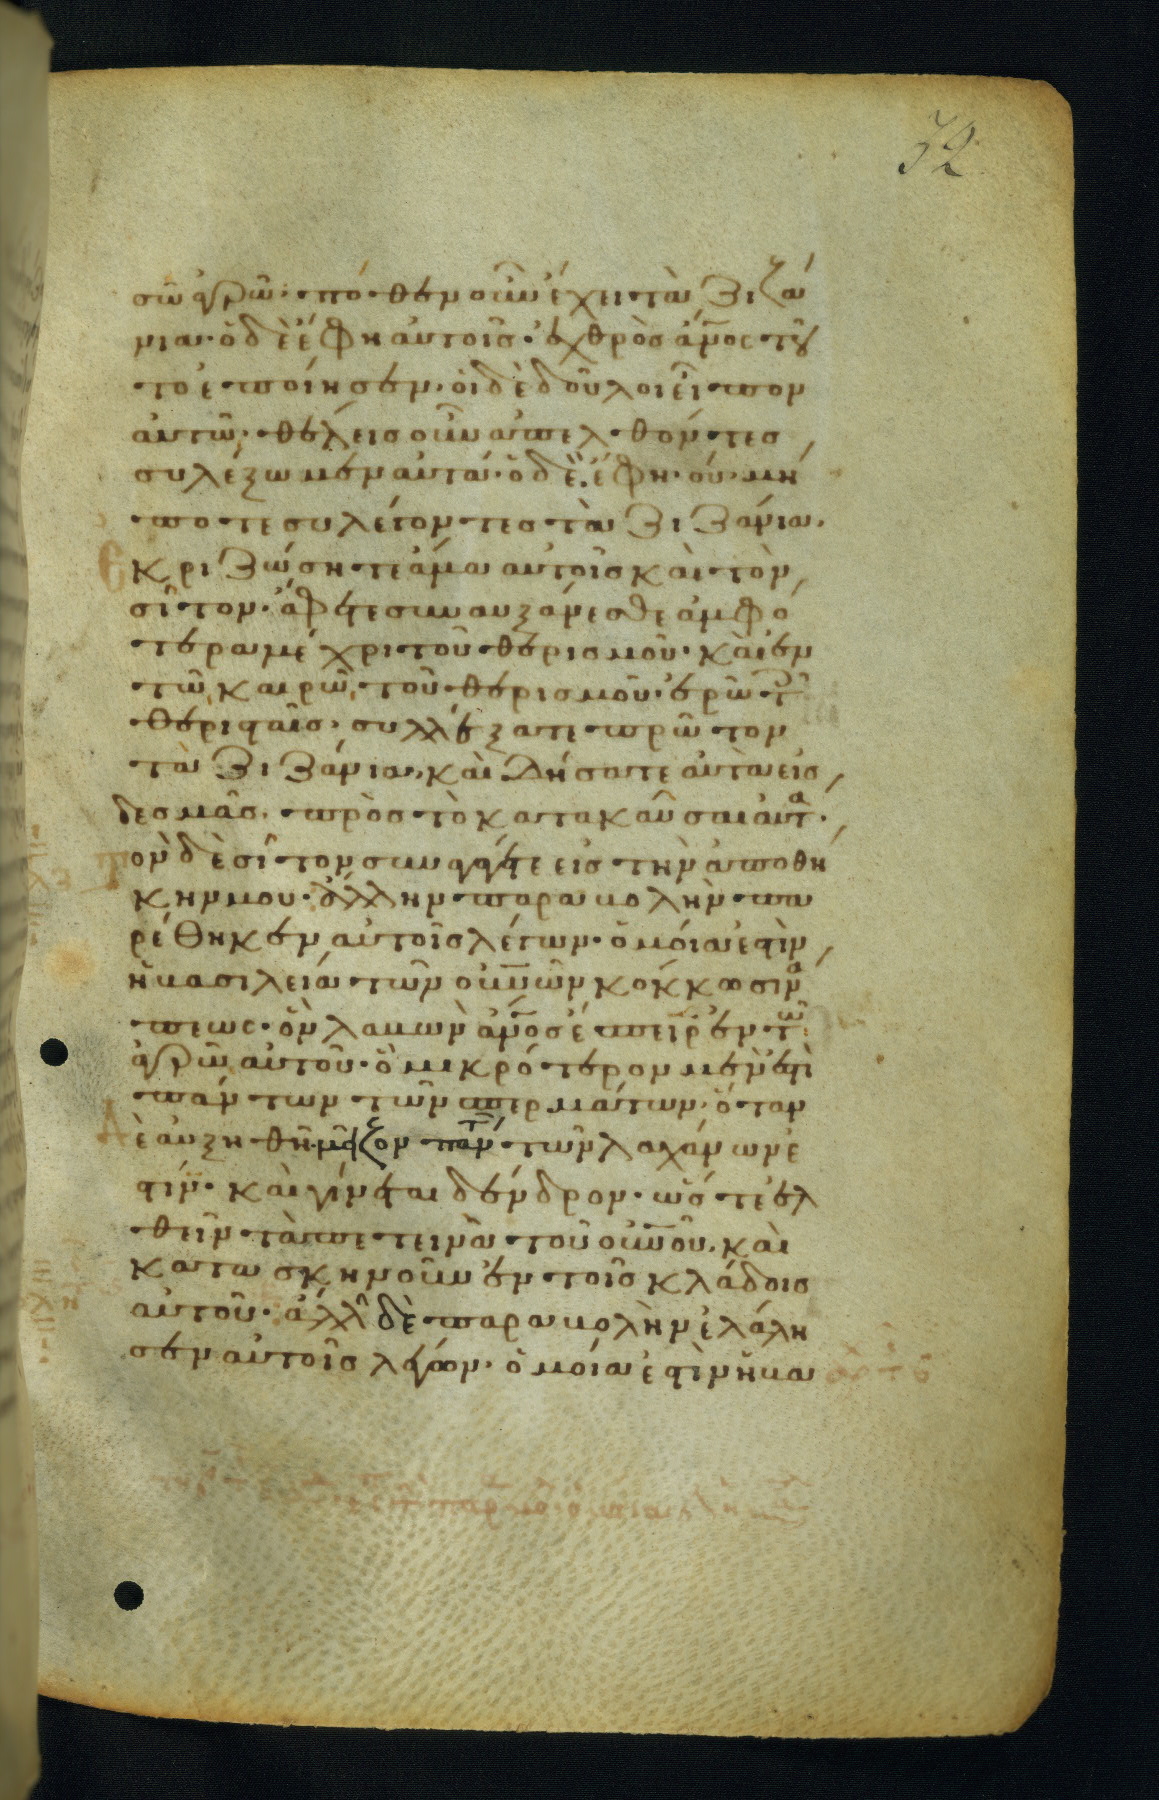 32
σῶ ἀγρῶ· πόθεν οὖν ἔχει τὰ ζιζά
νια· ὁ δὲ ἔφη αὐτοῖς· ἐχθρὸς ἄνος τοῦ
το ἐποίησεν· οἱ δὲ δοῦλοι εἶπον
αὐτῶ· θέλεις οὖν ἀπελθόντες
συλέξωμεν αὐτά· ὁ δὲ ἔφη· οὔ· μή
ποτε συλέγοντες τὰ ζιζάνια,
ἐκριζώσητε ἅμα αὐτοῖς καὶ τὸν
σῖτον· ἄφετε συναυξάνεσθε ἀμφό
τερα μέχρι τοῦ θερισμοῦ· καὶ ἐν
τῶ καιρῶ τοῦ θερισμοῦ· ἐρῶ τ
θερισταῖς· συλλέξατε πρῶτον
τὰ ζιζάνια, καὶ δήσατε αὐτὰ εἰς
δεσμὰς, πρὸς τὸ κατακαῦσαι αὐτά·
τὸν δὲ σῖτον συναγάγετε εἰς τὴν ἀποθή
κην μου· ἄλλην παραβολὴν πα
ρέθηκεν αὐτοῖς λέγων· ὁμοία ἐστὶν
ἡ βασιλεία τῶν οὐνῶν κόκκω σινά
πεως· ὃν λαβὼν ἄνος ἔσπειρεν ἐν τῶ
ἀγρῶ αὐτοῦ· ὃ μικρότερον μέν ἐστι
πάντων τῶν σπερμάτων· ὅταν
δὲ αὐξηθῆ· μεῖζον πάντ τῶν λαχάνων ἐ
στίν· καὶ γίνεται δένδρον· ὥστε ἐλ
θεῖν τὰ πετεινὰ τοῦ οὐνοῦ, καὶ
κατασκηνοῦν ἐν τοῖς κλάδοις
αὐτοῦ· ἄλλην δὲ παραβολὴν ἐλάλη
σεν αὐτοῖς λέγων· ὁμοία ἐστὶν ἡ βα